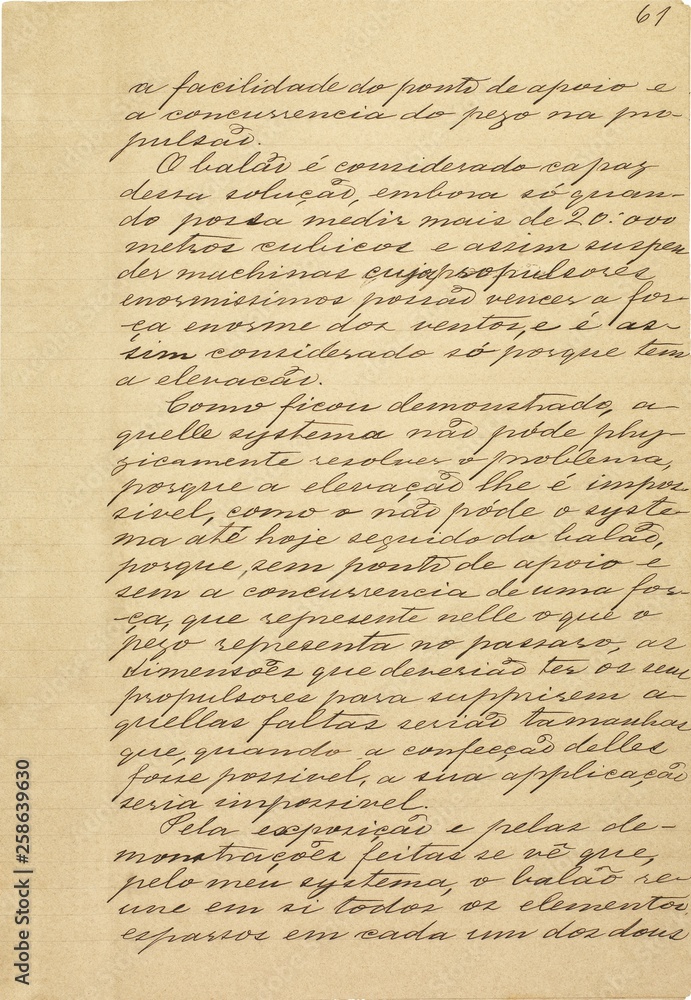 61
a facilidade do ponto de apoio e
a concurrencia do pezo na pro-
pulsão.
O balão é considerado capaz
dessa solução, embora só quan-
do possa medir mais de 20:000
metros cubicos e assim suspen
der machinas cujos propulsores
enormissimos possão vencer a for-
ça enorme dos ventos, e é as-
sim considerado só porque tem
a elevacão.
Como ficou demonstrado, a-
quelle systema não póde phy-
zicamente resolver o problema,
porque a elevação lhe é impos-
sivel, como o não pode o syste-
ma até hoje seguido do balão,
porque, sem ponto de apoio e
sem a concurrencia de uma for-
ça, que represente nelle o que o
pezo representa no passaro, as
dimensões que deverião ter os seus
propulsores para supprirem a-
quellas faltas serião tamanhas
que, quando a confecção delles
fosse possivel, a sua applicação
seria impossivel.
Pela exposição e pelas de-
monstrações feitas se vê que,
pelo meu systema, o balão re-
une em si todos os elementos
esparsos em cada um dos dous
Adobe Stock | #258639630
Adobe Stock